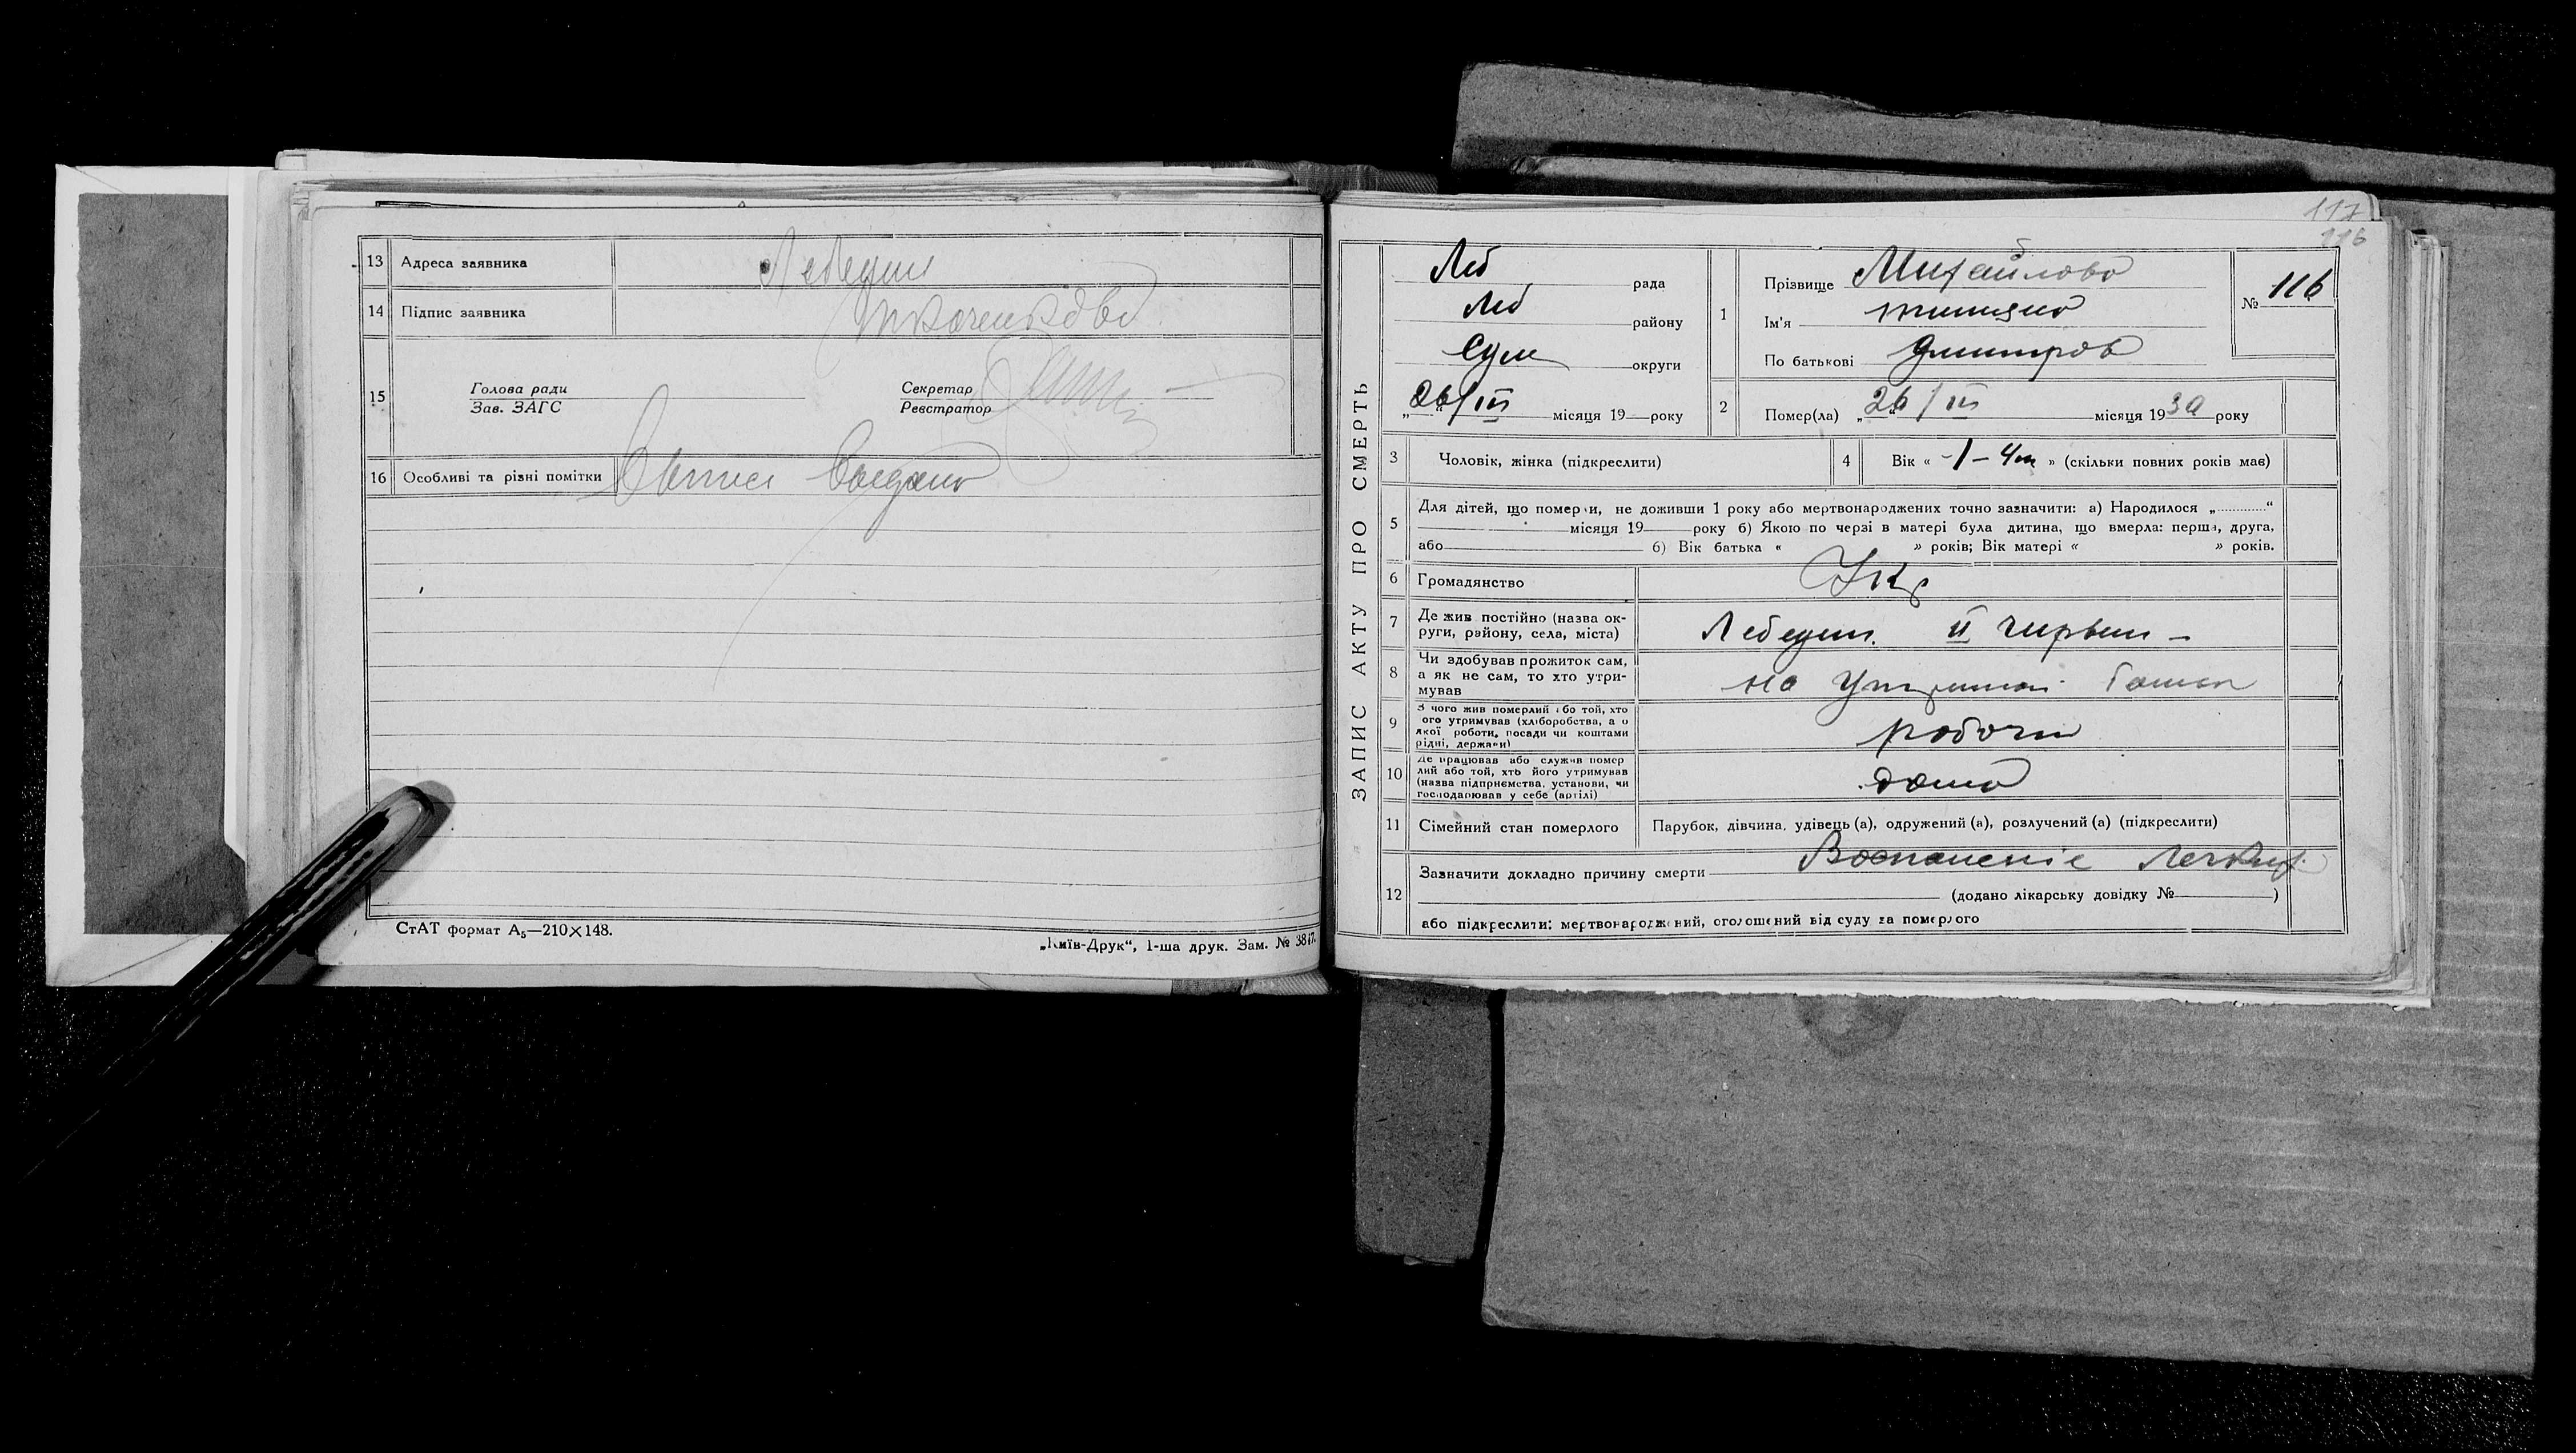 13 Адреса заявника Лебедин
14 Підпис заявника
15 Голова ради
Зав. ЗАГС
Секретар
Реєстратор
16 Особливі та різні помітки
СтАТ формат А₅—210×148.
„Київ-Друк“, 1-ша друк. Зам. № 3847.
117
116
ЗАПИС АКТУ ПРО СМЕРТЬ
Леб рада
Леб району
Сум округи
„26/III місяця 19 року
1 Прізвище Михайлова
Ім'я
По батькові Дмитров
№ 116
2 Помер(ла) „26“/III місяця 1930 року
3 Чоловік, жінка (підкреслити)
4 Вік « -1-4м » (скільки повних років має)
5 Для дітей, що померли, не доживши 1 року або мертвонароджених точно зазначити: а) Народилося „............“
місяця 19 року б) Якою по черзі в матері була дитина, що вмерла: перша, друга,
або б) Вік батька « » років; Вік матері « » років.
6 Громадянство Укр
7 Де жив постійно (назва ок-
руги, району, села, міста) Лебедин. II
8 Чи здобував прожиток сам,
а як не сам, то хто утри-
мував на
9 З чого жив померлий або той, хто
ого утримував (хліборобства, а о
якої роботи, посади чи коштами
рідні, держави) робочи
10 Де працював або служив помер
лий або той, хть його утримував
(назва підприємства, установи, чи
господарював у себе (артілі) дома
11 Сімейний стан померлого Парубок, дівчина, удівець (а), одружений (а), розлучений (а) (підкреслити)
12 Зазначити докладно причину смерти Воспаленіе легких
(додано лікарську довідку № )
або підкреслити: мертвонароджений, оголошений від суду за померлого